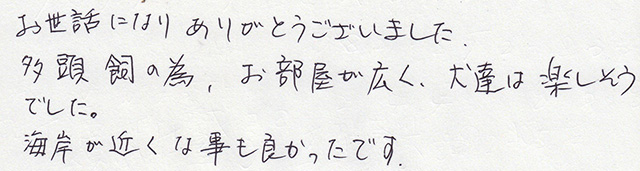 お世話になり ありがとうございました.
多頭飼の為, お部屋が広く、犬達は楽しそう
でした。
海岸が近くな事も良かったです.